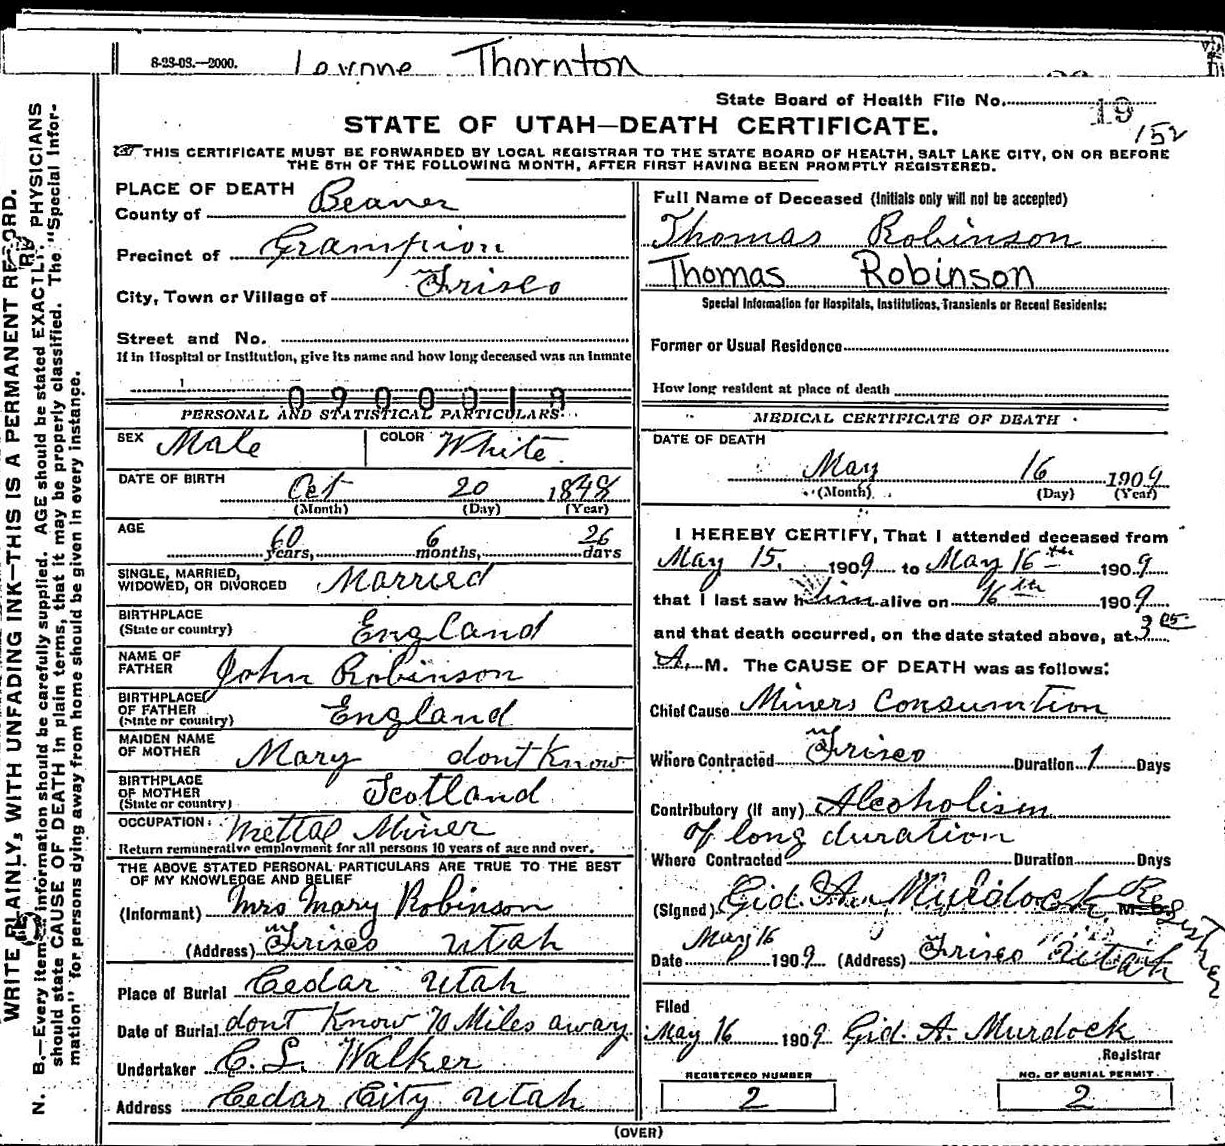 8-23-08.—2000. Levone Thornton
State Board of Health File No. 19
152
STATE OF UTAH—DEATH CERTIFICATE.
THIS CERTIFICATE MUST BE FORWARDED BY LOCAL REGISTRAR TO THE STATE BOARD OF HEALTH, SALT LAKE CITY, ON OR BEFORE
THE 5TH OF THE FOLLOWING MONTH, AFTER FIRST HAVING BEEN PROMPTLY REGISTERED.
WRITE PLAINLY, WITH UNFADING INK—THIS IS A PERMANENT RECORD.
N. B.—Every item of information should be carefully supplied. AGE should be stated EXACTLY. PHYSICIANS
should state CAUSE OF DEATH in plain terms, that it may be properly classified. The "Special Infor-
mation" for persons dying away from home should be given in every instance.
PLACE OF DEATH
County of Beaver
Precinct of Grampion
City, Town or Village of Frisco
Street and No.
If in Hospital or Institution, give its name and how long deceased was an inmate
0900019
PERSONAL AND STATISTICAL PARTICULARS.
SEX Male COLOR White.
DATE OF BIRTH Oct 20 1848
(Month) (Day) (Year)
AGE 60 years, 6 months, 26 days
SINGLE, MARRIED,
WIDOWED, OR DIVORCED Married
BIRTHPLACE
(State or country) England
NAME OF
FATHER John Robinson
BIRTHPLACE
OF FATHER
(State or country) England
MAIDEN NAME
OF MOTHER Mary dont Know
BIRTHPLACE
OF MOTHER
(State or country) Scotland
OCCUPATION: Mettal Miner
Return remunerative employment for all persons 10 years of age and over.
THE ABOVE STATED PERSONAL PARTICULARS ARE TRUE TO THE BEST
OF MY KNOWLEDGE AND BELIEF
(Informant) Mrs Mary Robinson
(Address) Frisco Utah
Place of Burial Cedar Utah
Date of Burial dont Know 70 Miles away
Undertaker C. L. Walker
Address Cedar City Utah
Full Name of Deceased (Initials only will not be accepted)
Thomas Robinson
Thomas Robinson
Special Information for Hospitals, Institutions, Transients or Recent Residents:
Former or Usual Residence
How long resident at place of death
MEDICAL CERTIFICATE OF DEATH
DATE OF DEATH
May 16 1909
(Month) (Day) (Year)
I HEREBY CERTIFY, That I attended deceased from
May 15. 1909 to May 16th 1909
that I last saw him alive on 16th 1909
and that death occurred, on the date stated above, at 3 05
A. M. The CAUSE OF DEATH was as follows:
Chief Cause Miners Consumtion
Where Contracted Frisco Duration 1 Days
Contributory (if any) Alcoholism
of long duration
Where Contracted Duration Days
(Signed) Gid. A. Murdock M. D. Register
Date May 16 1909 (Address) Frisco Utah
Filed
May 16 1909 Gid. A. Murdock
Registrar
REGISTERED NUMBER NO. OF BURIAL PERMIT
2 2
(OVER)